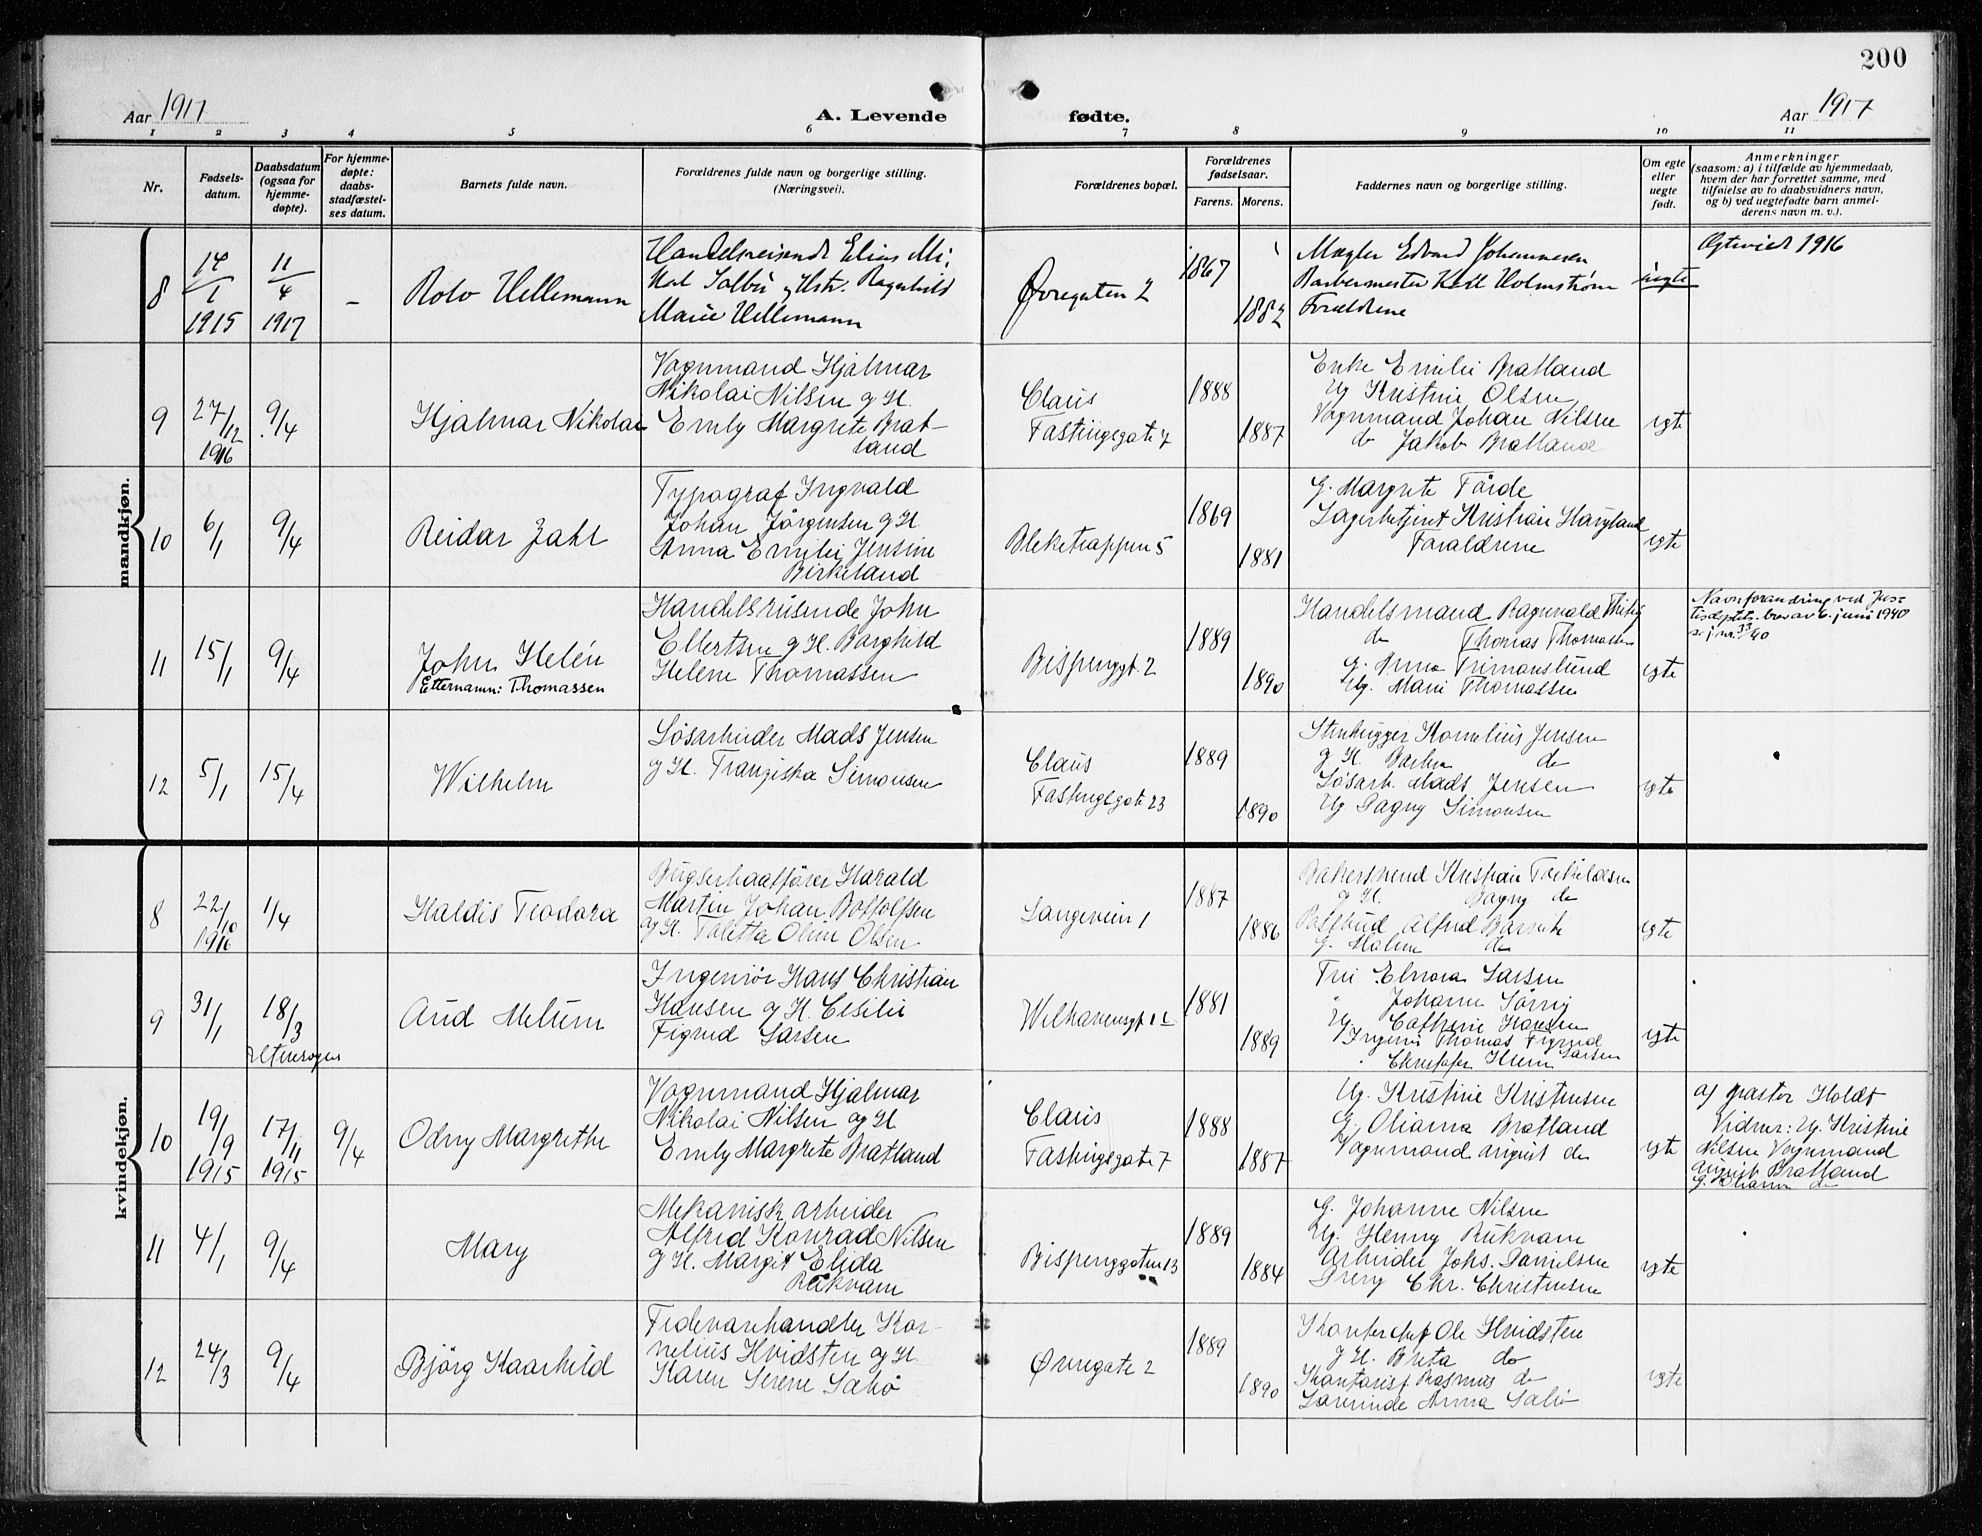 200
Aar 1917
A. Levende
fødte.
Aar 1917
1 2 3 4 5 6 7 8 9 10 11
Nr.
Fødsels-
datum.
Daabsdatum
(ogsaa for
hjemme-
døpte).
For hjemme-
døpte:
daabs-
stadfæstel-
ses datum.
Barnets fulde navn.
Forældrenes fulde navn og borgerlige stilling.
(Næringsvei).
Forældrenes bopæl.
Forældrenes
fødselsaar.
Farens. Morens.
Faddernes navn og borgerlige stilling.
Om egte
eller
uegte
født.
Anmerkninger
(saasom: a) i tilfælde av hjemmedaab,
hvem der har forrettet samme, med
tilføielse av to daabsvidners navn,
og b) ved uegtefødte barn anmel-
derens navn m. v.).
mandkjøn.
8
14/1
1915
11/4
1917
–
Rolv Hellemann
Handelsreisende Elias Mi-
kal Salbu og Hstr. Ragnhild
Marie Hellemann
Øvregaten 2
1867
1882
Mægler Edvard Johannesen
Barbermester Ketil Holmstrøm
Forældrene
uegte
Egteviet 1916
9
27/12
1916
9/4
Hjalmar Nikolai
Vognmand Hjalmar
Nikolai Nilsen og H.
Emly Margrete Brat-
land
Claus
Fastingsgate 7
1888
1887
Enke Emilie Bratland
Ug Kristine Olsen
Vognmand Johan Nilsen
do Jakob Bratland
egte
10
6/1
9/4
Reidar Zahl
Typograf Ingvald
Johan Jørgensen og H
Anna Emilie Jensine
Birkeland
Bleketrappen 5
1869
1881
G. Margrete Førde
Lagerbetjent Kristian Haugland
Forældrene
egte
11
15/1
9/4
John Helén
Etternamn: Thomassen
Handelsreisende John
Ellertsen og H. Borghild
Helene Thomassen
Bispenggt. 2
1889
1890
Handelsmand Ragnvald
do Thomas Thomassen
G. Anna
Ug. Marie Thomassen
egte
Navneforandring ved Jus-
tisdeptets brev av 6. juni 1940
se j.nr. 33/40
12
5/1
15/4
Wilhelm
Løsarbeider Mads Jensen
og H. Franziska Simonsen
Claus
Fastingsgate 23
1889
1890
Stenhugger Kornelius Jensen
g H. Barbra do
Løsarb. Mads Jensen
Ug Dagny Simonsen
egte
kvindekjøn.
8
22/10
1916
1/4
Haldis Teodora
Bugserbaatfører Harald
Martin Johan Botolfsen
og H. Taletta Oline Olsen
Langeveien 1
1887
1886
Bakersvend Kristian Torkildsen
g H. Dagny do
Postbud Alfred
G. Malene do
egte
9
31/1
18/3
Aud Melum
Ingeniør Hans Christian
Hansen og H. Cesilie
Figved Larsen
Welhavensgt 12
1881
1889
Frue Elnora Larsen
" Johanne
Ug. Cathrine Hansen
Ingeniør Thomas Figved
Larsen
egte
10
19/9
1915
17/11
1915
9/4
Odny Margrethe
Vognmand Hjalmar
Nikolai Nilsen og H
Emly Margrete Bratland
Claus
Fastingsgate 7
1888
1887
Ug. Kristine Kristensen
G. Olianna Bratland
Vognmand August do
egte
af pastor Holdt
Vidner: Ug. Kristine
Nilsen Vognmand
August Bratland
G. Olianna do
11
4/1
9/4
Mary
Mekanisk arbeider
Alfred Konrad Nilsen
g H. Margit Elida
Rükvam
Bispenggaten 13
1889
1884
G. Johanne Nilsen
Ug. Henny Rükvam
Arbeider Johs. Danielsen
Dreng Chr. Christensen
egte
12
24/3
9/4
Bjørg Kaarhild
Fedevarehandler Kor-
nelius Hvidsten og H.
Karen Serene Sabø
Øvregate 2
1889
1890
Kontorchef Ole Hvidsten
g H. Breta do
Kontorist Rasmus do
Lærerinde Anna Sabø
egte